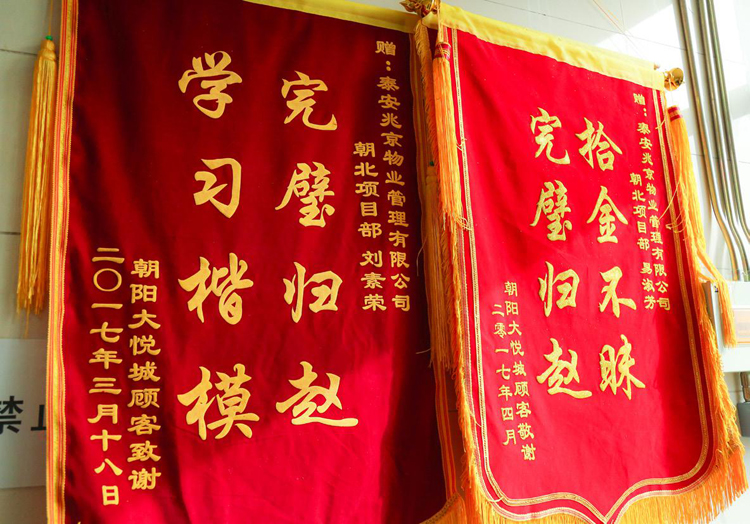 赠：泰安兆京物业管理有限公司
朝北项目部 刘素荣
完璧归赵
学习楷模
朝阳大悦城顾客致谢
二〇一七年三月十八日
赠：泰安兆京物业管理有限公司
朝北项目部 易淑芳
拾金不昧
完璧归赵
朝阳大悦城顾客敬谢
二零一七年四月
禁止